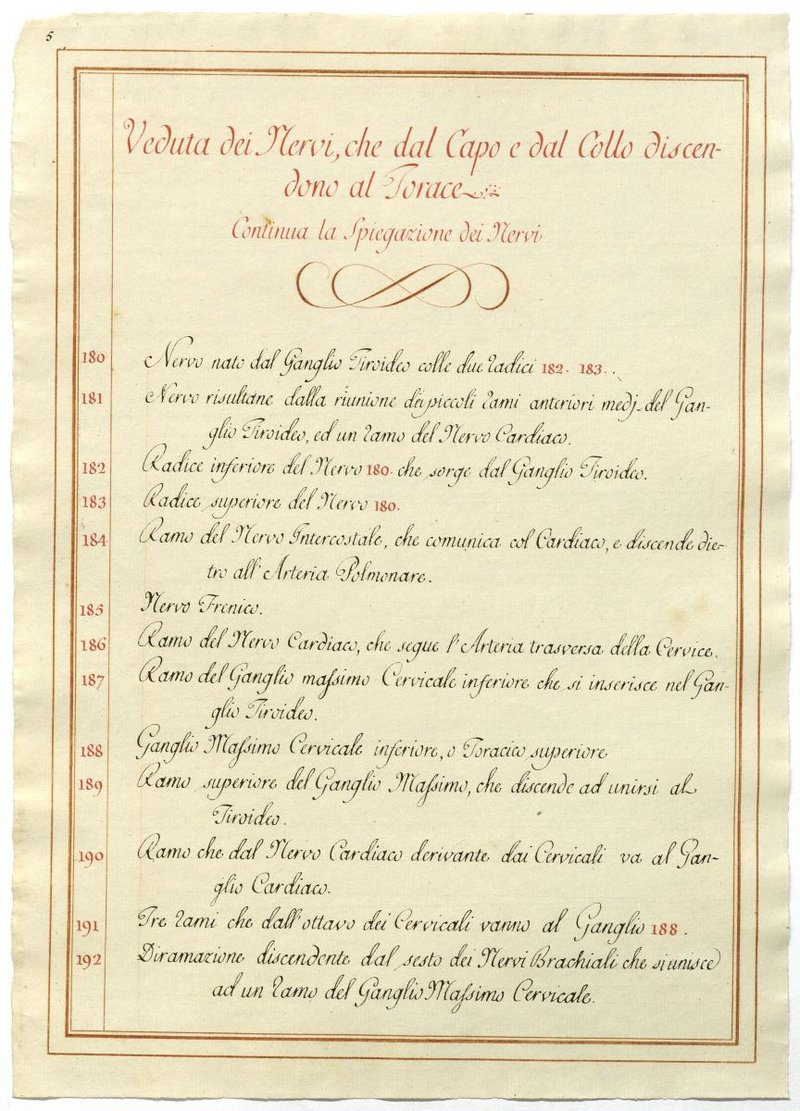 5
Veduta dei Nervi, che dal Capo e dal Collo discen-
dono al Torace
Continua la Spiegazione dei Nervi
180 Nervo nato dal Ganglio Tiroideo colle due radici 182. 183.
181 Nervo risultane dalla riunione dei piccoli rami anteriori medj del Gan-
glio Tiroideo, ed un ramo del Nervo Cardiaco.
182 Radice inferiore del Nervo 180. che sorge dal Ganglio Tiroideo.
183 Radice superiore del Nervo 180.
184 Ramo del Nervo Intercostale, che comunica col Cardiaco, e discende die-
tro all'Arteria Polmonare.
185 Nervo Frenico.
186 Ramo del Nervo Cardiaco, che segue l'Arteria trasversa della Cervice.
187 Ramo del Ganglio maſsimo Cervicale inferiore che si inserisce nel Gan-
glio Tiroideo.
188 Ganglio Maſsimo Cervicale inferiore, o Toracico superiore
189 Ramo superiore del Ganglio Maſsimo, che discende ad unirsi al
Tiroideo.
190 Ramo che dal Nervo Cardiaco derivante dai Cervicali va al Gan-
glio Cardiaco.
191 Tre rami che dall'ottavo dei Cervicali vanno al Ganglio 188.
192 Diramazione discendente dal sesto dei Nervi Brachiali che si unisce
ad un ramo del Ganglio Maſsimo Cervicale.